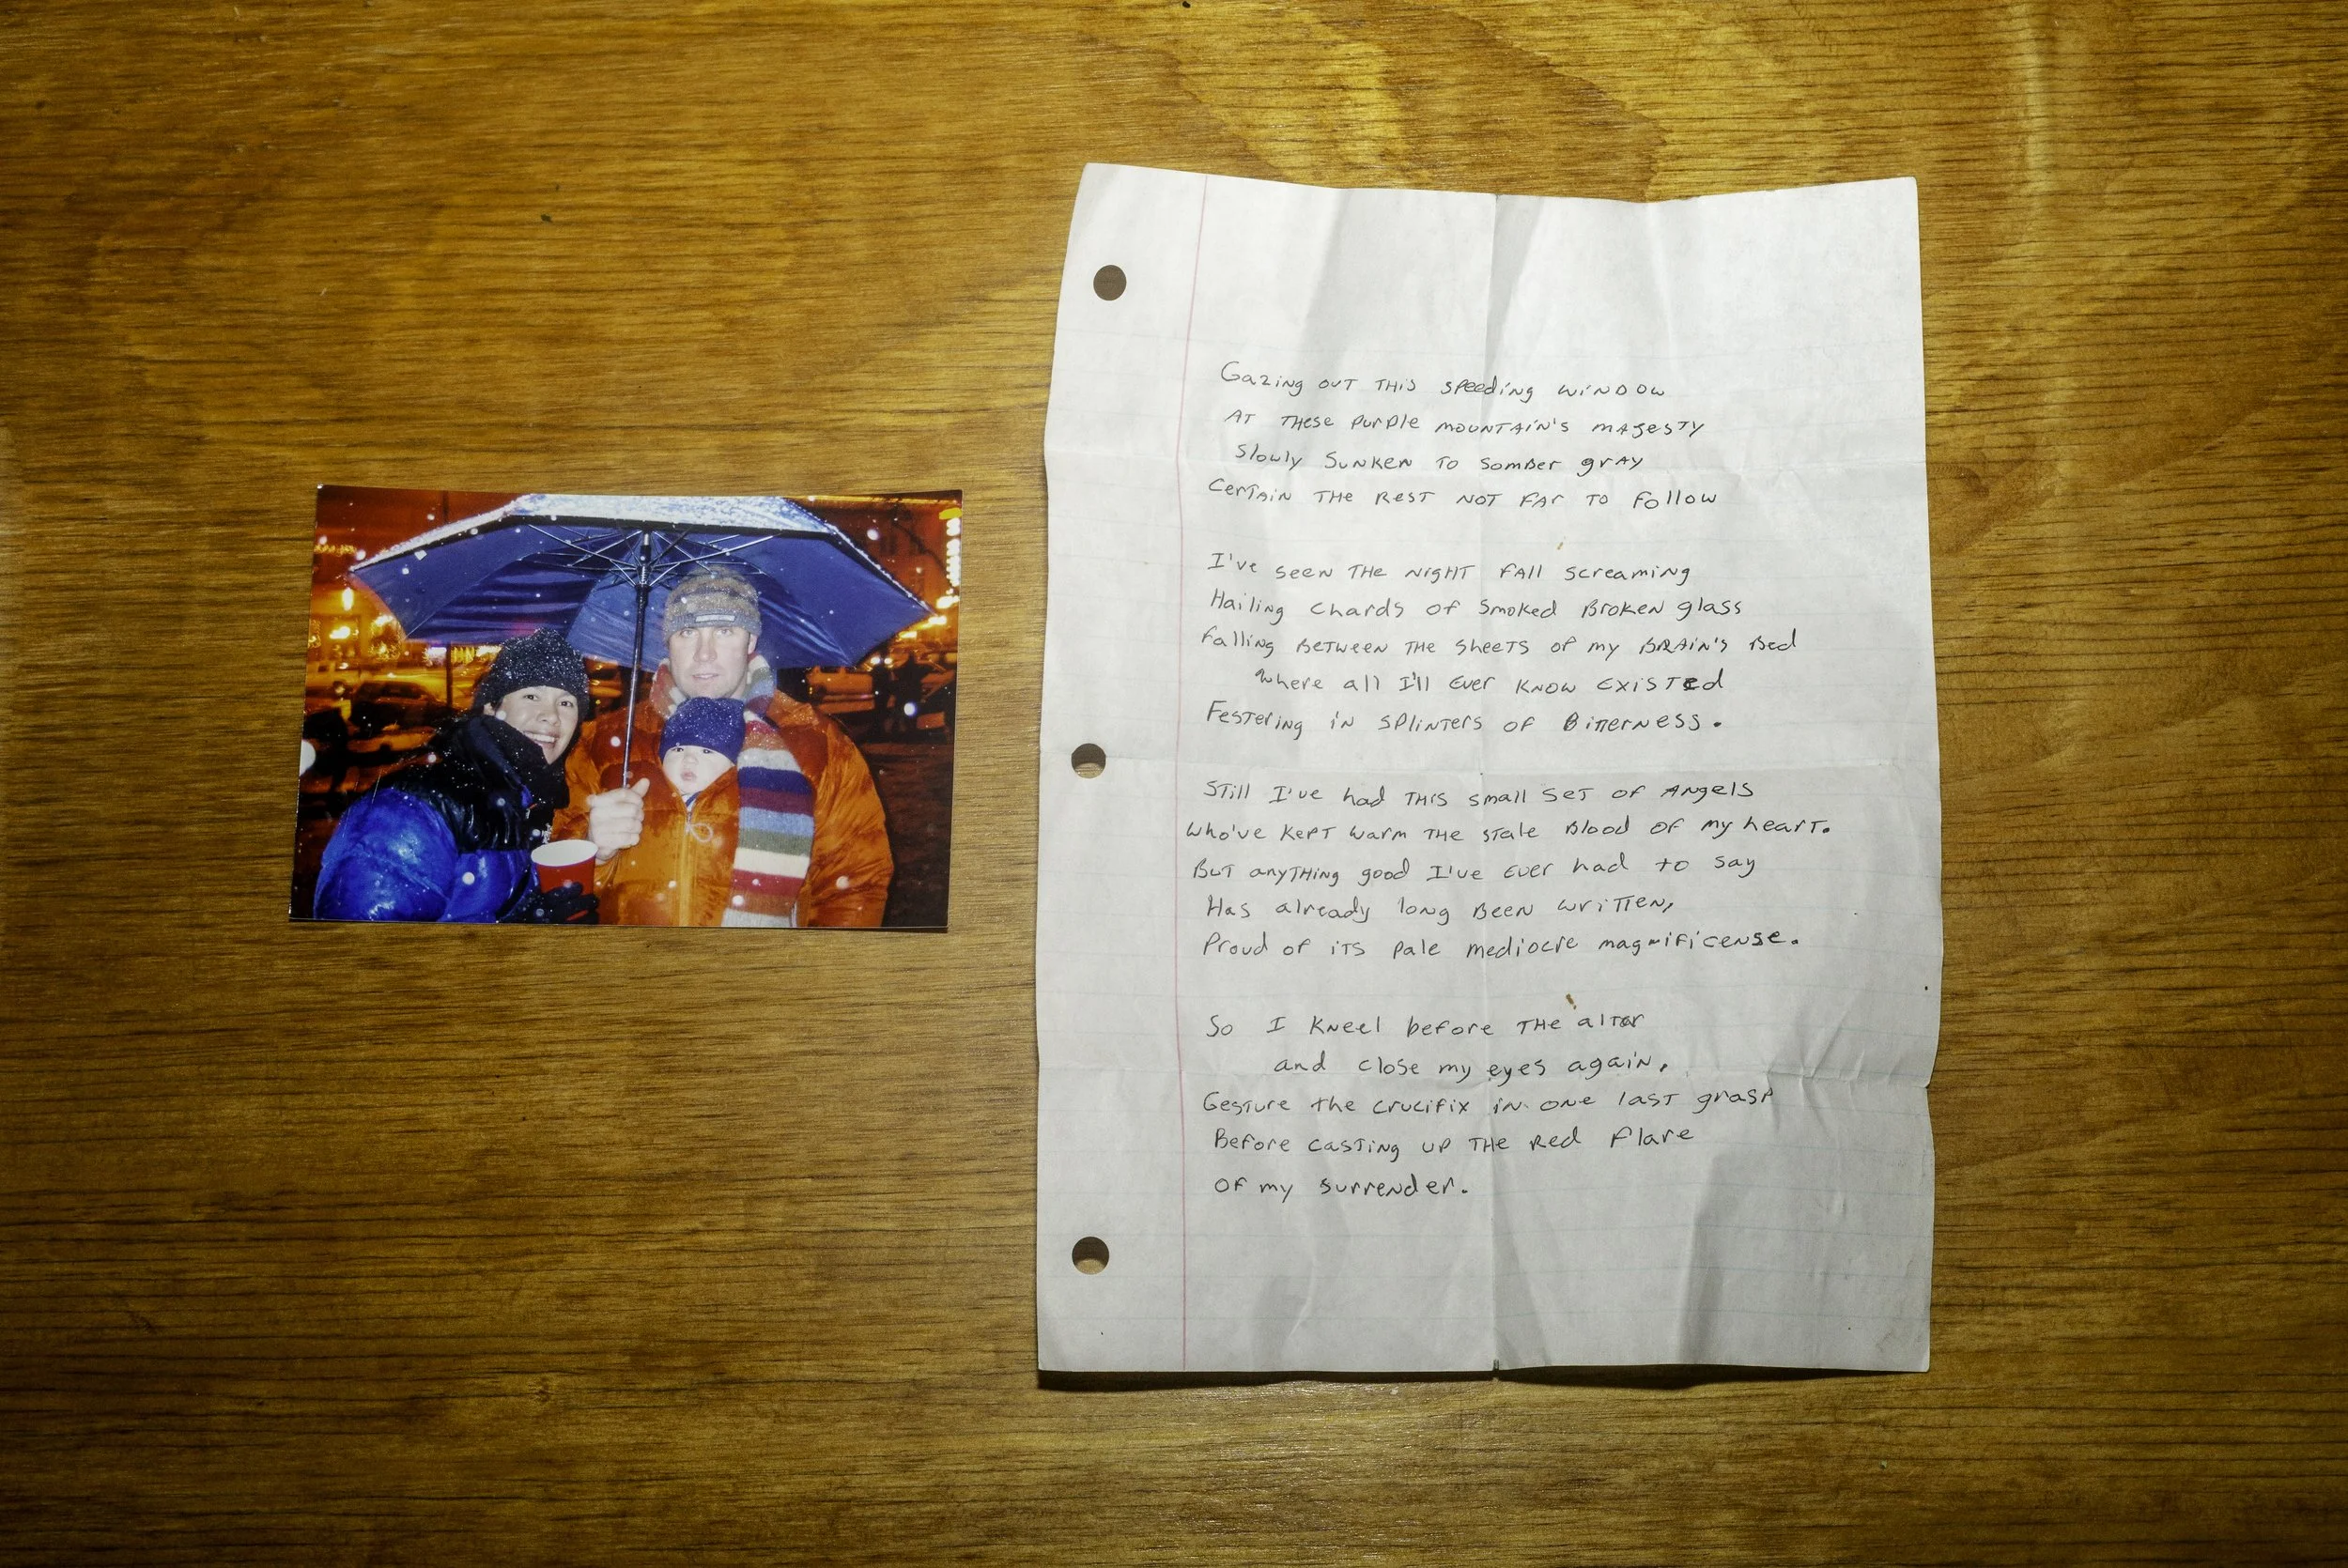 Gazing out this speeding window
At these purple mountain's majesty
Slowly sunken to somber gray
Certain the rest not far to follow
I've seen the night fall screaming
Hailing chards of smoked broken glass
falling between the sheets of my brain's bed
where all I'll ever know existed
Festering in splinters of bitterness.
Still I've had this small set of angels
who've kept warm the stale blood of my heart.
But anything good I've ever had to say
Has already long been written,
Proud of its pale mediocre magnificense.
So I kneel before the altar
and close my eyes again.
Gesture the crucifix in one last grasp
Before casting up the red flare
of my surrender.